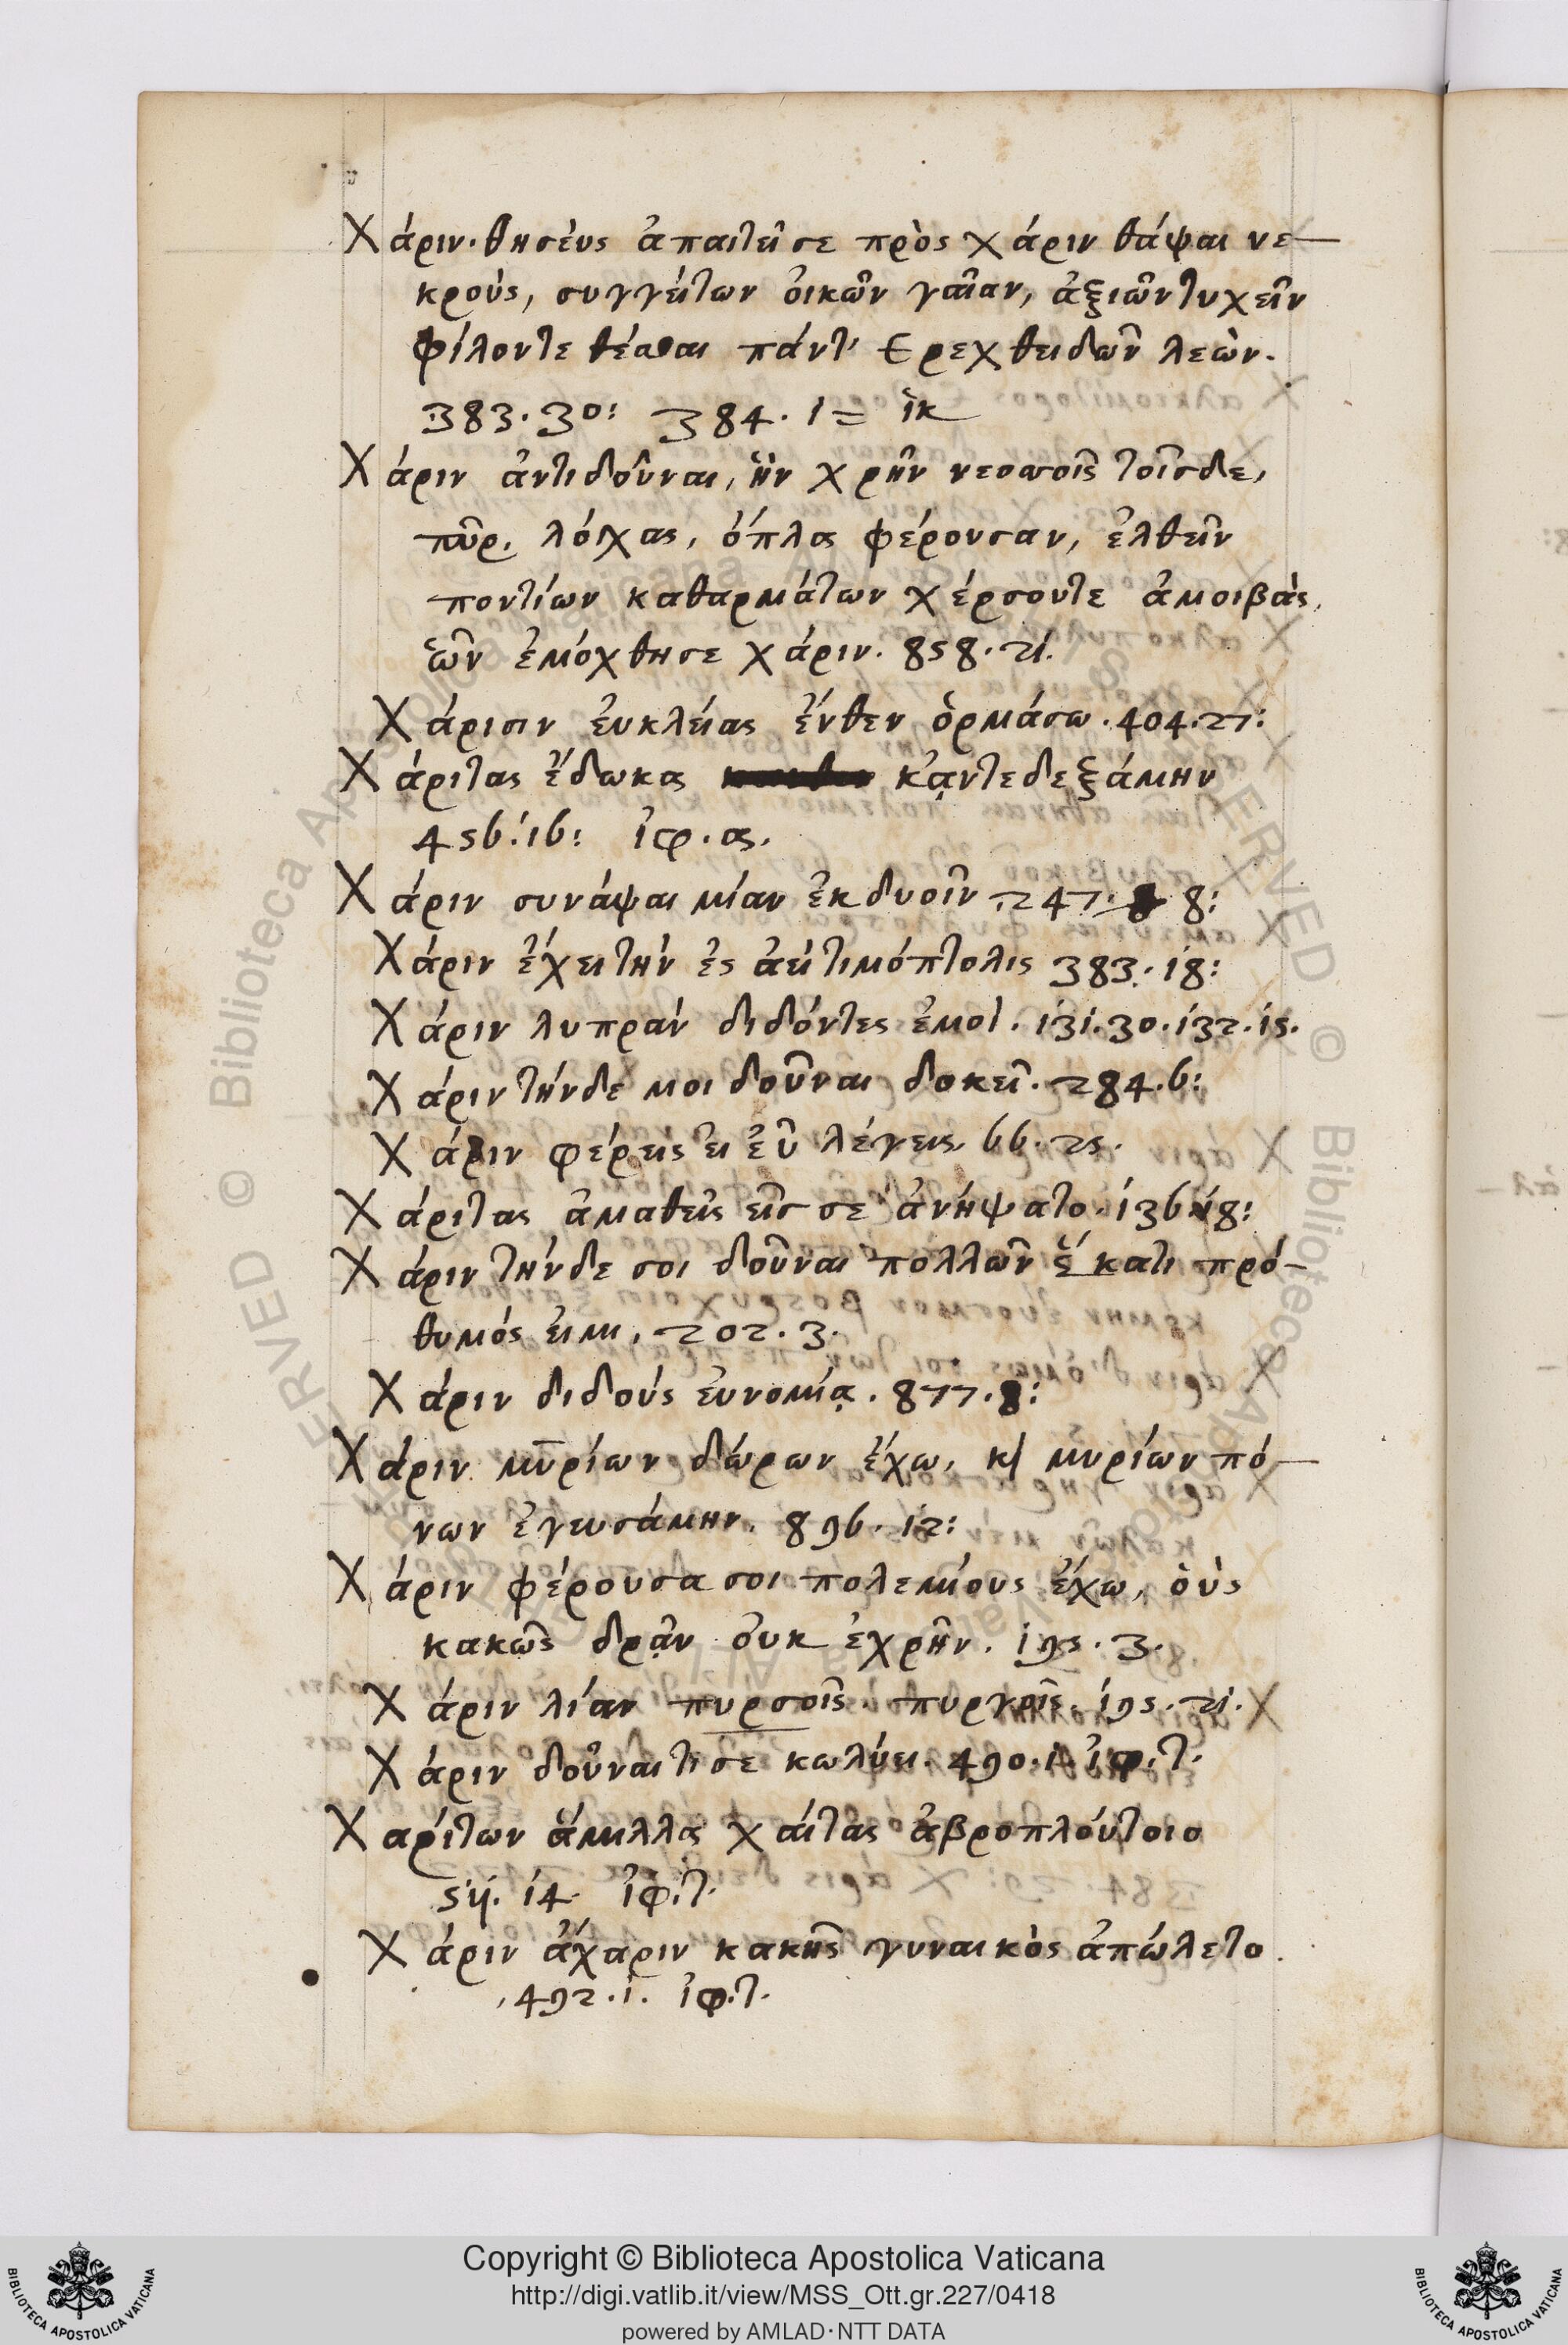 Χάριν. θησεύς ἀπαιτεῖ σε πρὸς χάριν θάψαι νε-
κρούς, συγγείτων οἰκῶν γαῖαν, ἀξιῶν τυχεῖν
φίλον τε θέσθαι πάντ' Ερεχθειδῶν λεών.
383. 30: 384. 1 = ἱκ
Χάριν ἀντιδοῦναι, ἣν χρῆν νεοσσοῖς τοῖσδε,
πῦρ, λόγχας, ὅπλα φέρουσαν, ἐλθεῖν
ποντίων καθαρμάτων χέρσου τε ἀμοιβάς,
ὧν ἐμόχθησε χάριν. 858. 21.
Χάρισιν εὐκλείας ἔνθεν ὁρμάσω. 404. 27:
Χάριτας ἔδωκα κᾀντεδεξάμην
456. 16: ἰφ. α.
Χάριν συνάψαι μίαν ἐκ δυοῖν 247. 8:
Χάριν ἔχει τήν ἐς ἀεὶ τιμόπτολις 383. 18:
Χάριν λυπράν διδόντες ἐμοί. 131. 30. 132. 15.
Χάριν τήνδε μοι δοῦναι δοκεῖ. 284. 6:
Χάριν φέρεις εἰ εὖ λέγεις. 66. 25.
Χάριτας ἀμαθεῖς εἴς σε ἀνήψατο. 136. 18:
Χάριν τήνδε σοι δοῦναι πολλῶν ἕκατι πρό-
θυμός εἰμι, 202. 3.
Χάριν διδούς εὐνομίᾳ. 877. 8:
Χάριν μυρίων δώρων ἔχω, κ μυρίων πό-
νων ἐγευσάμην. 896. 12:
Χάριν φέρουσα σοι πολεμίους ἔχω, οὓς
κακῶς δρᾷν οὐκ ἐχρῆν. 195. 3.
Χάριν λίαν πυρσοῖς. πυργοῖς. 195. 21.
Χάριν δοῦναι τί σε κωλύει. 490. 1. ἰφ. τ.
Χαρίτων ἅμιλλα χαίτας ἁβροπλούτοιο
511. 14. ἰφ. τ.
Χάριν ἄχαριν κακῆς γυναικὸς ἀπώλετο.
492. 1. ἰφ. τ.
Copyright © Biblioteca Apostolica Vaticana
http://digi.vatlib.it/view/MSS_Ott.gr.227/0418
powered by AMLAD·NTT DATA